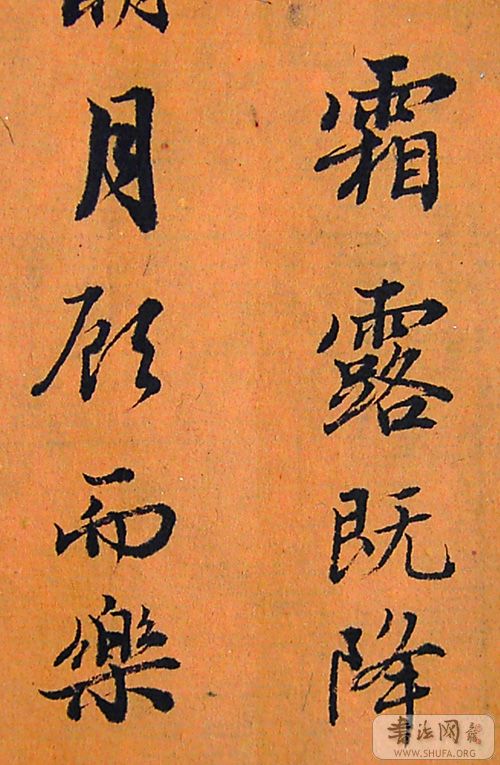 霜露既降
明月顧而樂
書法网
WWW.SHUFA.ORG